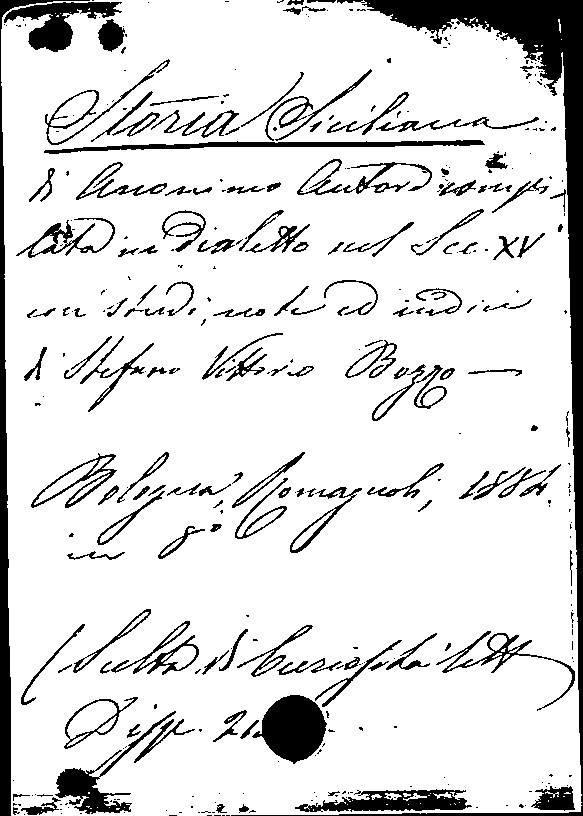 Storia Siciliana
di Anonimo Autore compi-
lata in dialetto nel Sec. XV
con studi, note ed indici
di Stefano Vittorio Bozzo —
Bologna, Romagnoli, 1884.
in 8º
(Scelta di Curiosità lett
Disp. 21